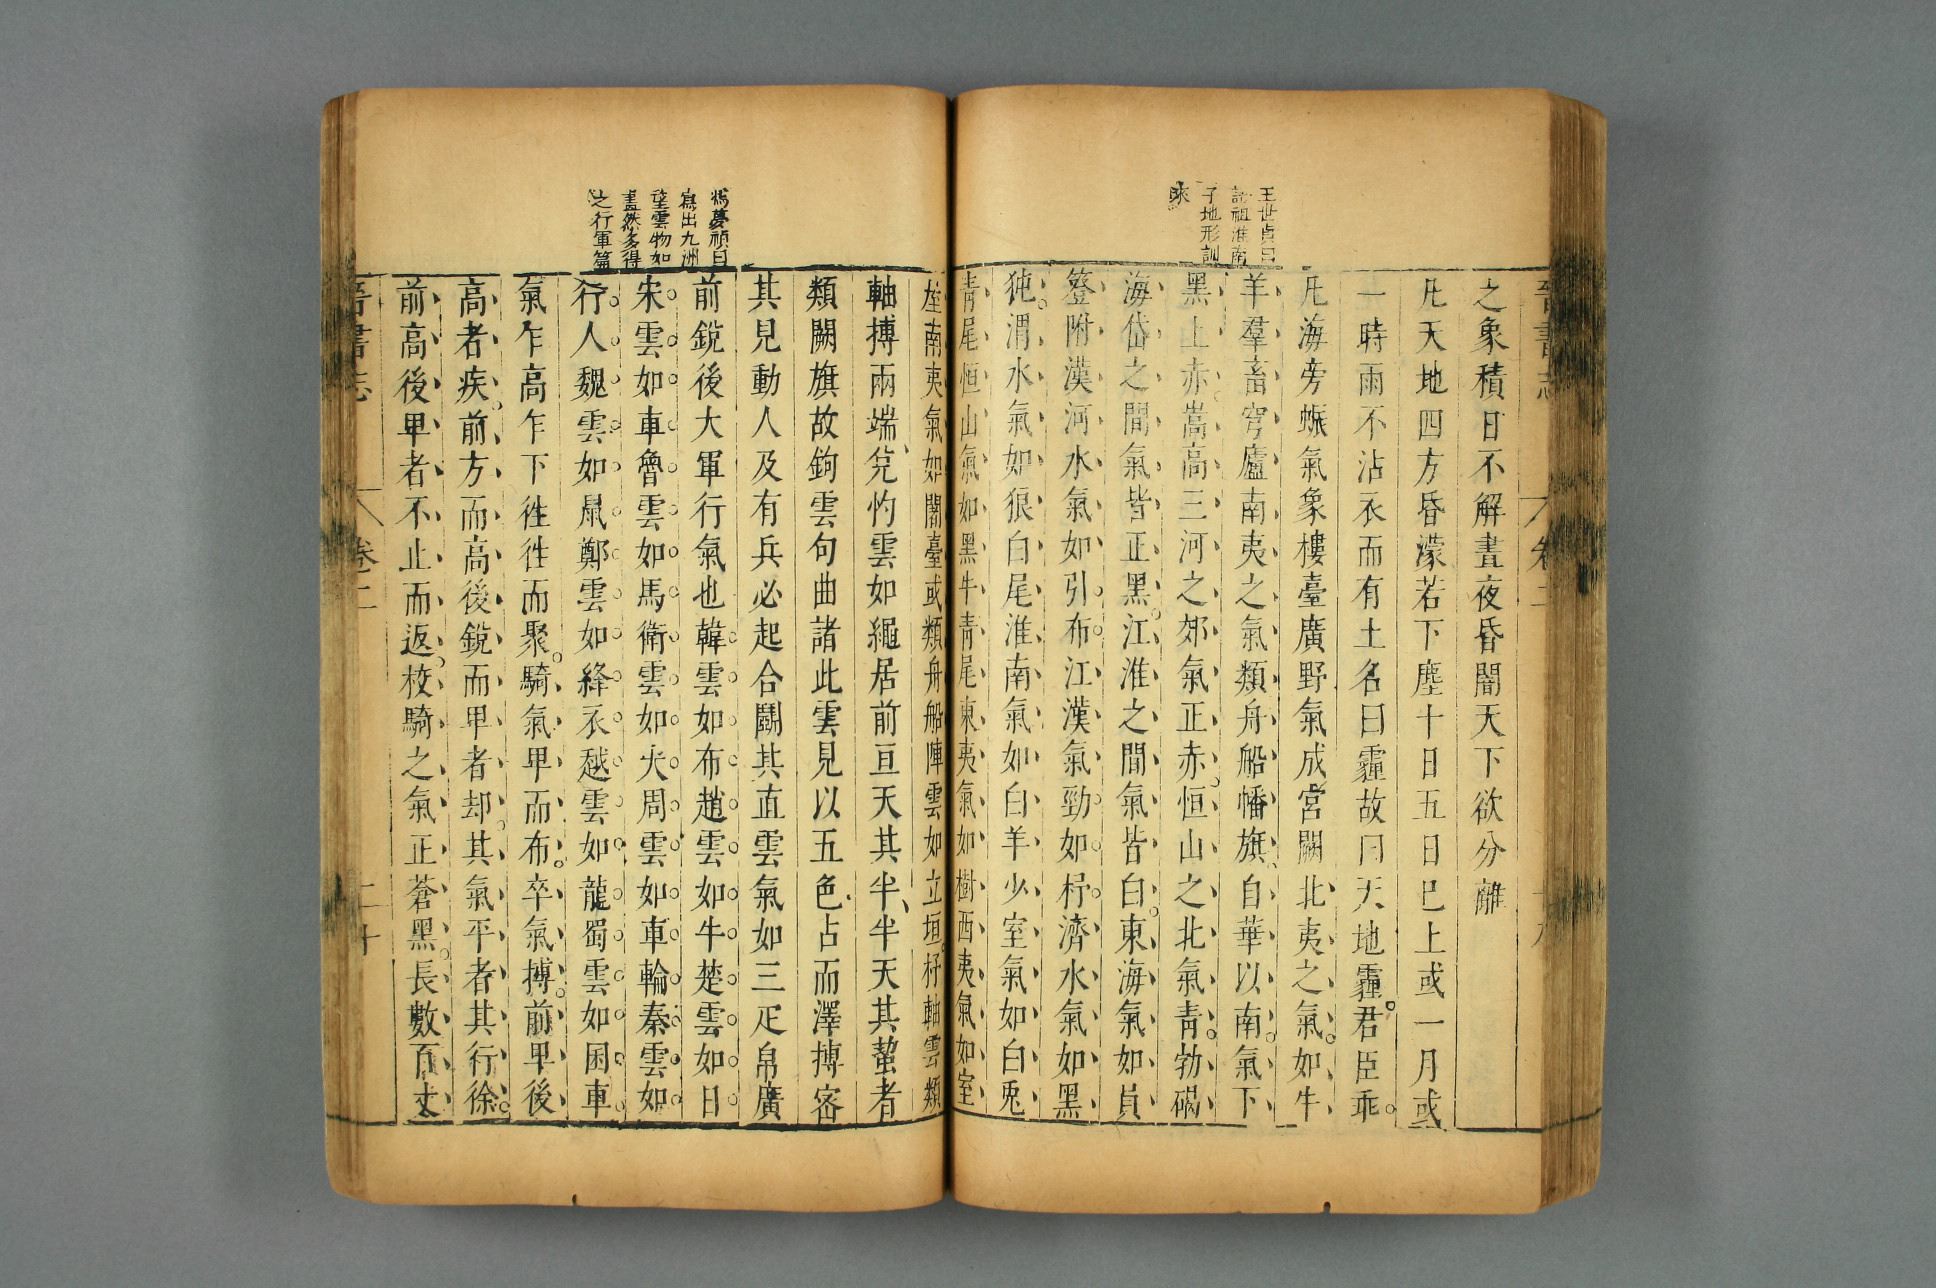 王世貞曰
訛祖淮南
子地形訓
來
晉書志
卷二
之象積日不解晝夜昏闇天下欲分離
凡天地四方昏濛若下塵十日五日巳上或一月或
一時雨不沾衣而有土名曰霾故曰天地霾君臣乖
凡海旁蜄氣象樓臺廣野氣成宮闕北夷之氣如牛
羊羣畜穹廬南夷之氣類舟船幡旗自華以南氣下
黑上赤嵩高三河之郊氣正赤恒山之北氣青勃碣
海岱之間氣皆正黑江淮之間氣皆白東海氣如貟
簦附漢河水氣如引布江漢氣勁如杼濟水氣如黑
㹠渭水氣如狼白尾淮南氣如白羊少室氣如白兎
青尾恒山氣如黑牛青尾東夷氣如樹西夷氣如室
馮夢禎曰
寫出九洲
望雲物如
畫然多得
之行軍篇
屋南夷氣如闍臺或類舟船陣雲如立垣杼軸雲類
軸搏兩端兊杓雲如繩居前亘天其半半天其蛪者
類闕旗故鉤雲句曲諸此雲見以五色占而澤搏密
其見動人及有兵必起合鬭其直雲氣如三疋帛廣
前銳後大軍行氣也韓雲如布趙雲如牛楚雲如日
宋雲如車魯雲如馬衛雲如犬周雲如車輪秦雲如
行人魏雲如鼠鄭雲如絳衣越雲如龍蜀雲如囷車
氣乍高乍下徃徃而聚騎氣卑而布卒氣搏前卑後
高者疾前方而高後銳而卑者却其氣平者其行徐
前高後卑者不止而返校騎之氣正蒼黑長數百丈
晉書志
卷二
二十